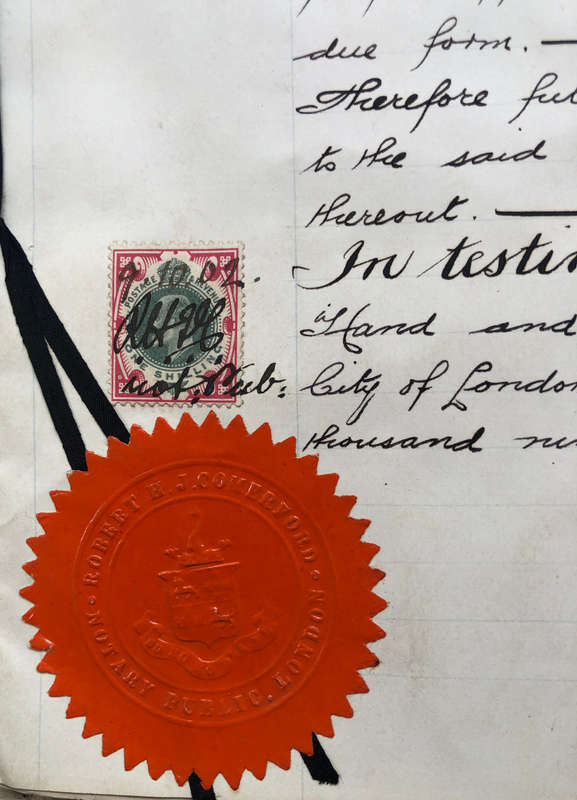 due form. —
Therefore ful
to the said
thereout. —
In testim
Hand and
City of London
thousand ni
9. 10. 02.
POSTAGE REVENUE
ONE SHILLING
Not. Pub:
ROBERT H. J. COMERFORD
NOTARY PUBLIC, LONDON